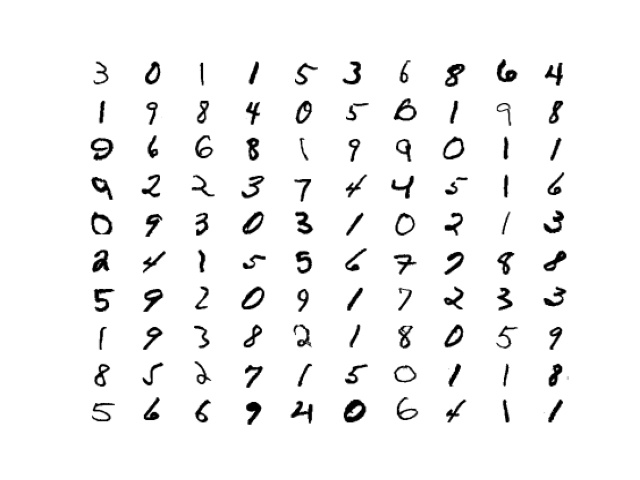 3 0 1 1 5 3 6 8 6 4
1 9 8 4 0 5 6 1 9 8
9 6 6 8 1 9 9 0 1 1
9 2 2 3 7 4 4 5 1 6
0 9 3 0 3 1 0 2 1 3
2 4 1 5 5 6 7 7 8 8
5 9 2 0 9 1 7 2 3 3
1 9 3 8 2 1 8 0 5 9
8 5 2 7 1 5 0 1 1 8
5 6 6 9 4 0 6 4 1 1